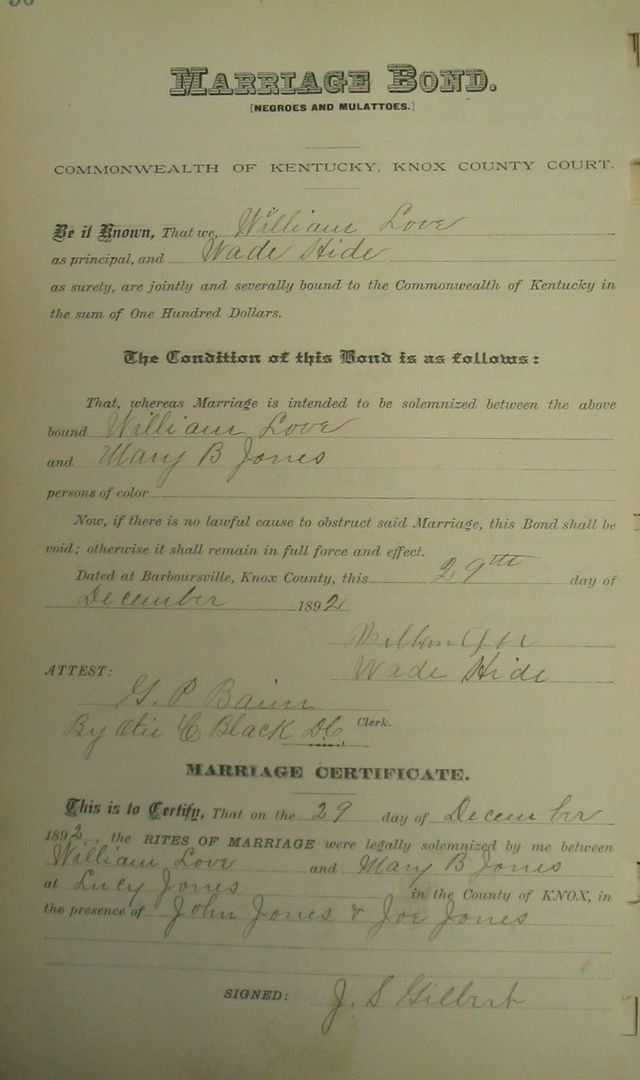 MARRIAGE BOND.
[NEGROES AND MULATTOES.]
COMMONWEALTH OF KENTUCKY, KNOX COUNTY COURT.
Be it Known, That we, William Love
as principal, and Wade Hide
as surety, are jointly and severally bound to the Commonwealth of Kentucky in
the sum of One Hundred Dollars.
The Condition of this Bond is as follows:
That, whereas Marriage is intended to be solemnized between the above
bound William Love
and Mary B Jones
persons of color
Now, if there is no lawful cause to obstruct said Marriage, this Bond shall be
void; otherwise it shall remain in full force and effect.
Dated at Barboursville, Knox County, this 29th day of
December 1892
Wade Hide
ATTEST:
G. P. Bain
By C Black DC Clerk.
MARRIAGE CERTIFICATE.
This is to Certify, That on the 29 day of December
1892, the RITES OF MARRIAGE were legally solemnized by me between
William Love and Mary B Jones
at Lucy Jones in the County of KNOX, in
the presence of John Jones & Joe Jones
SIGNED: J. S Gilbert